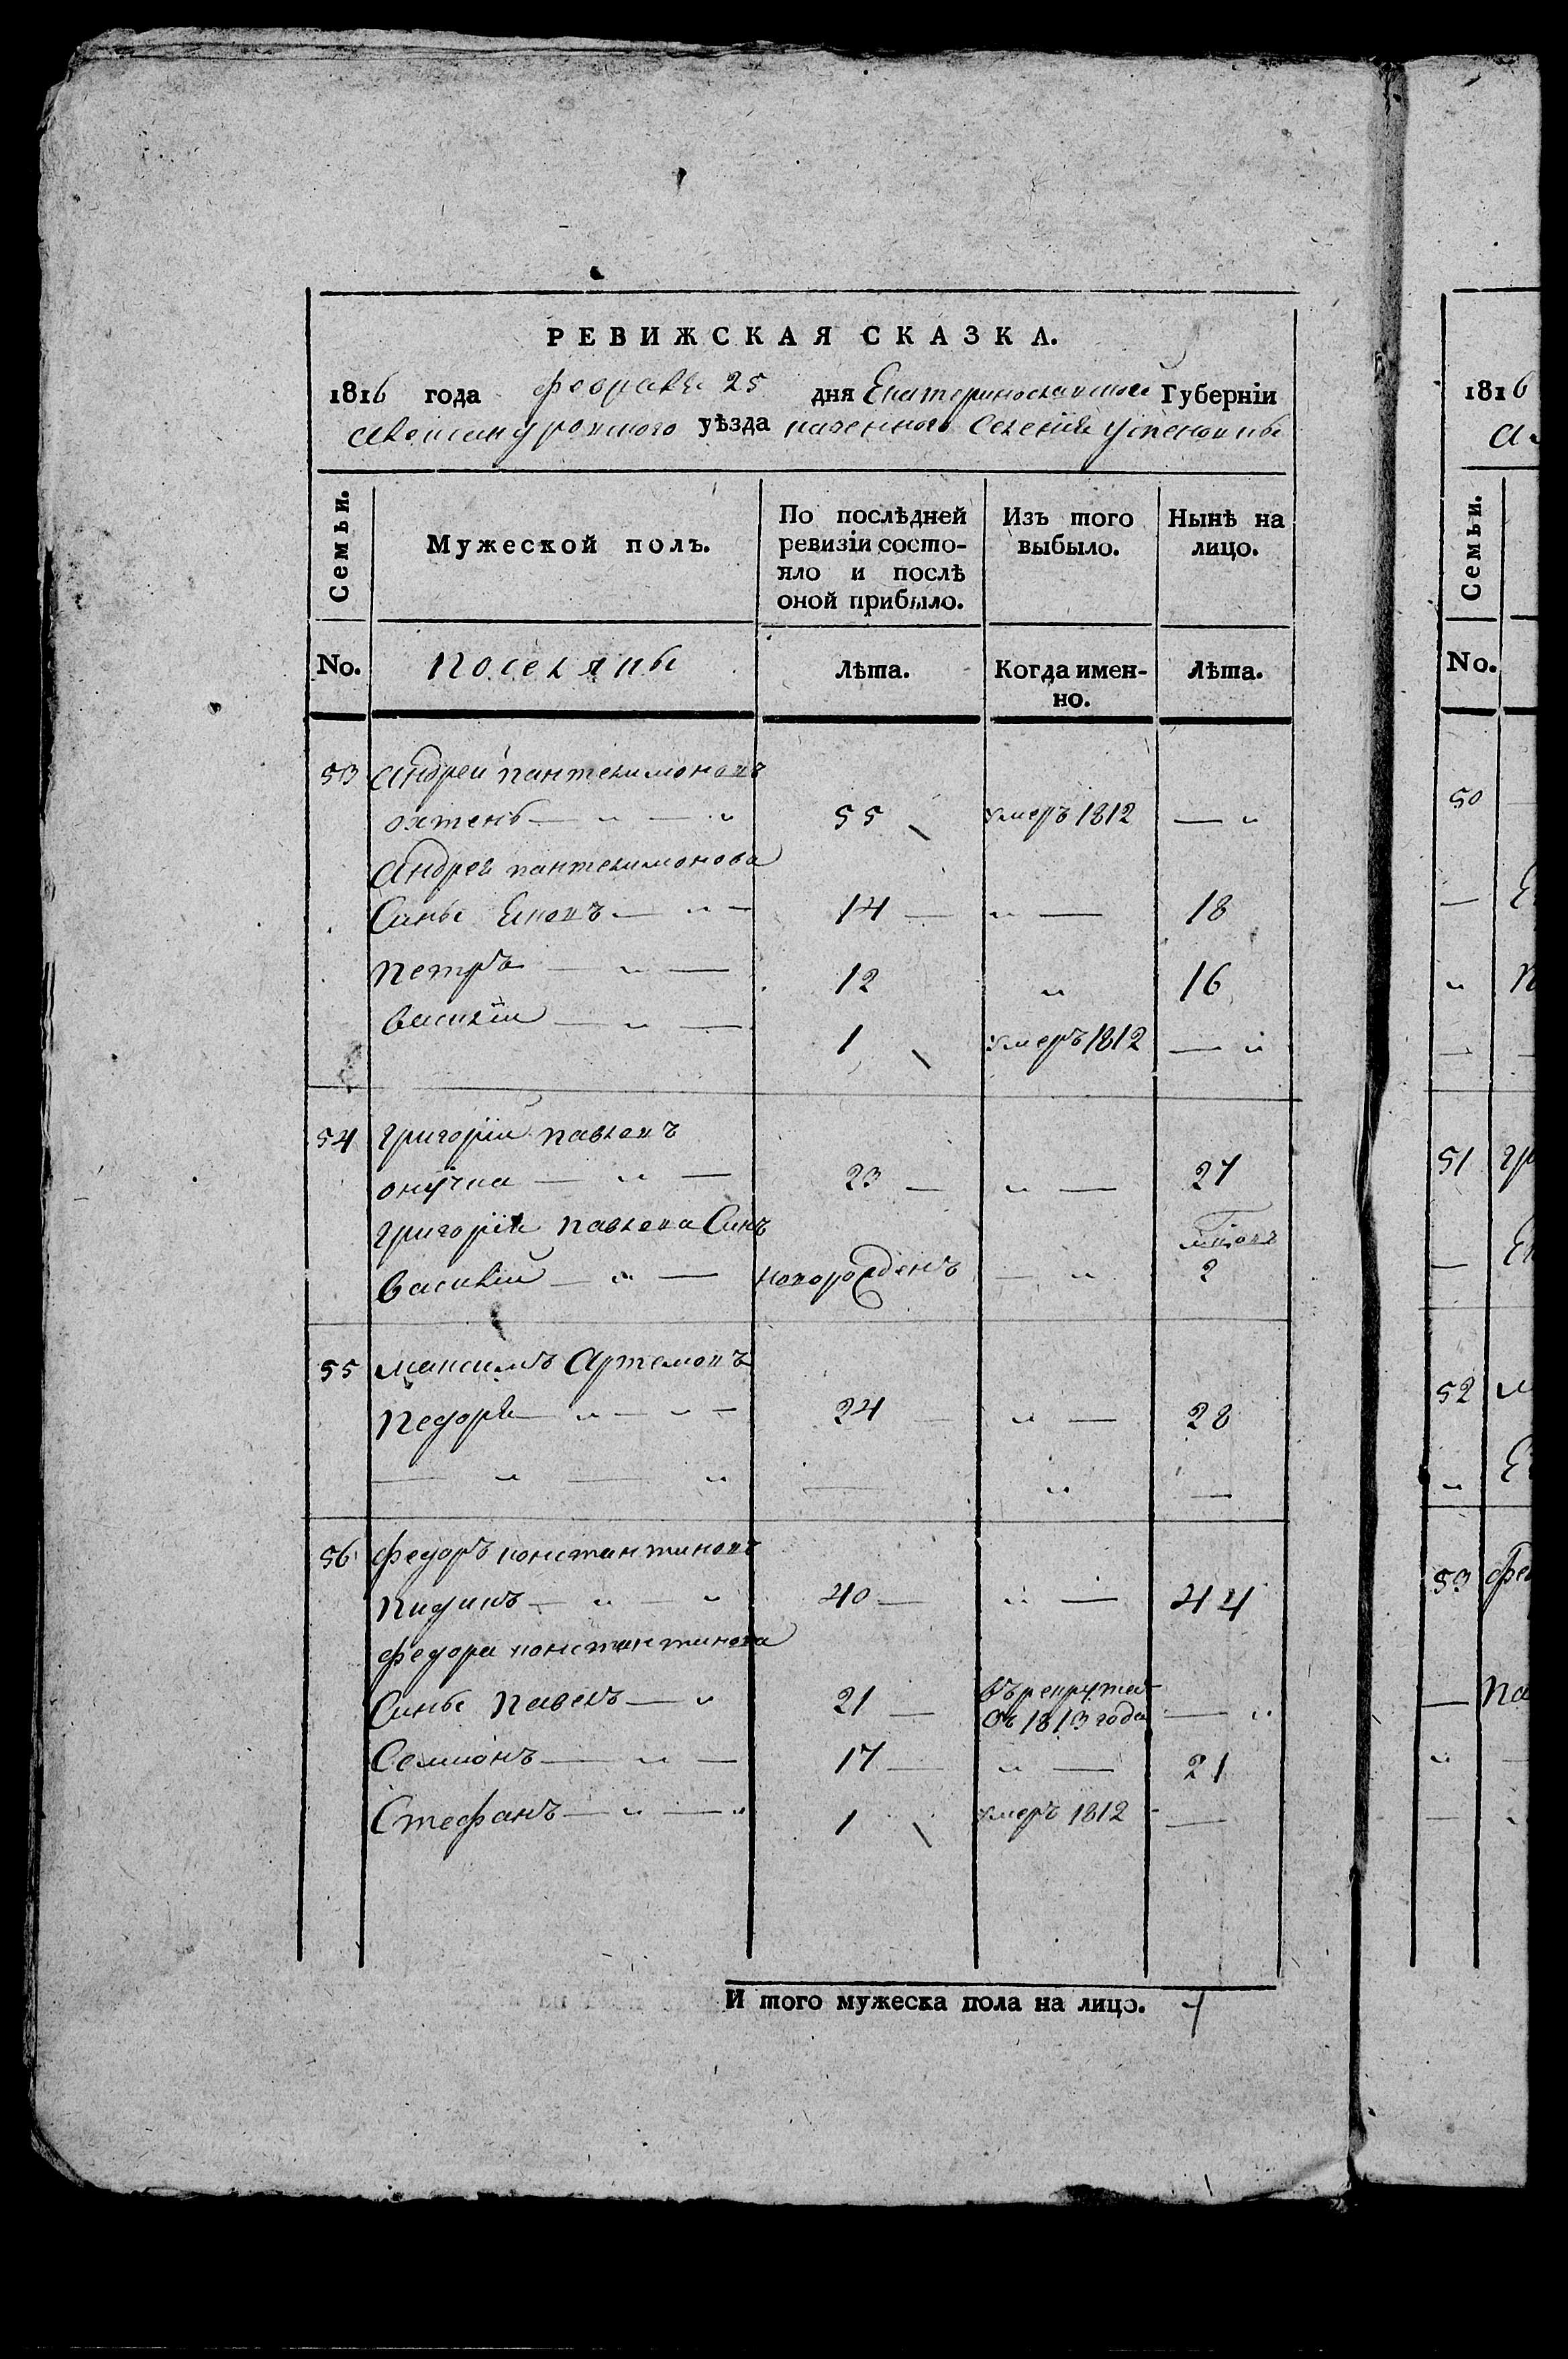 РЕВИЖСКАЯ СКАЗКА.
1816 года февраля 25 дня Екатеринославской Губерніи
Александровского уѣзда казенного Селенія Успеновки
Семьи.
Мужеской полъ.
По послѣдней ревизіи состо-
яло и послѣ
оной прибыло.
Изъ того
выбыло.
Нынѣ на
лицо.
No.
поселяны
Лѣта.
Когда имен-
но.
Лѣта.
53 Андрей пантелимоновъ
55 умеръ 1812 — "
Андрея пантелимонова
Сины Яковъ — " — 14 — " — 18
петръ — " — 12 " 16
василій — " — 1 умеръ 1812 — "
54 григорій павловъ
онучка — " — 23 — " — 27
григорія павлова Синъ
василій — " — новорожденъ — " 2
55 максимъ Артемовъ
24 — " — 28
— " — " — " —
56 федоръ константиновъ
— " — " 40 — " — 44
федора константинова
Сины павелъ — " 21 — въ рекрута
съ 1813 года — "
Семионъ — " — 17 — " — 21
Стефанъ — " — " 1 умеръ 1812 —
И того мужеска пола на лицо. 7
1816
Семьи.
No.
50
51
52
53